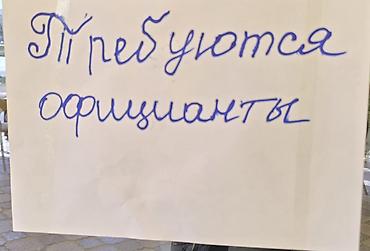 Требуются
официанты